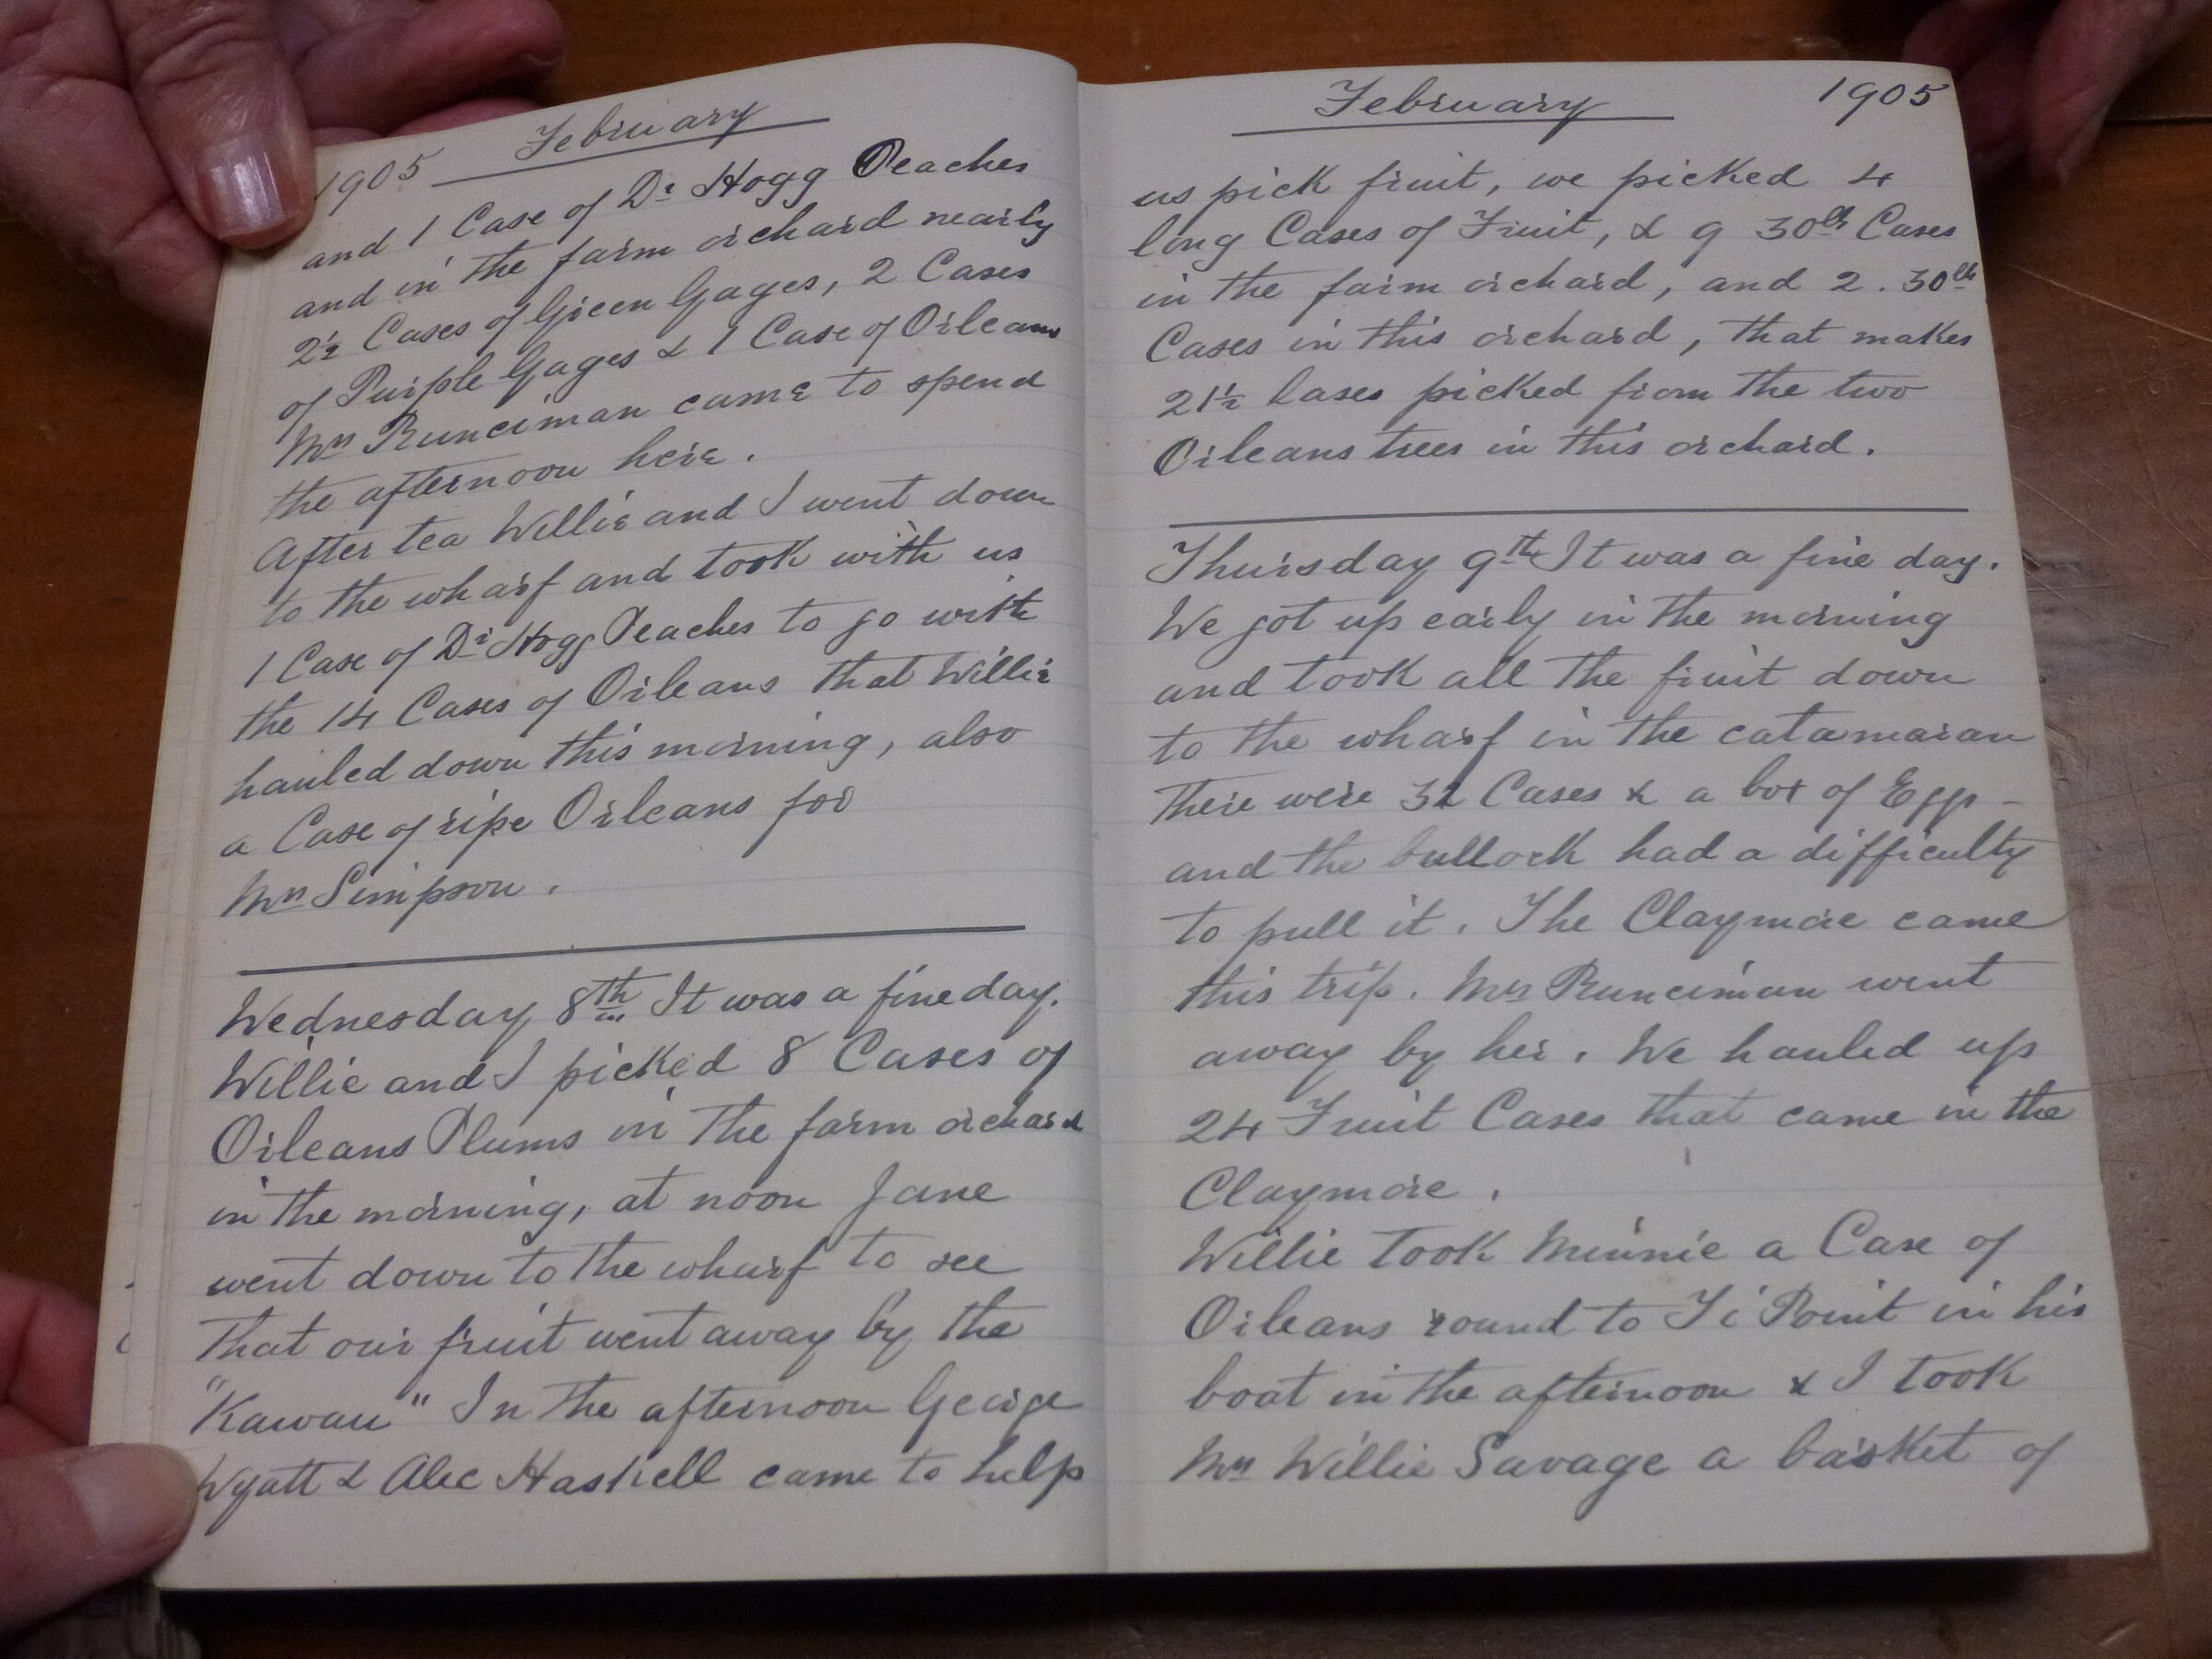 1905 February
and 1 Case of Dr Hogg Peaches
and in the farm orchard nearly
2½ Cases of Green Gages, 2 Cases
of Purple Gages & 1 Case of Orleans
Mrs Runciman came to spend
the afternoon here.
After tea Willie and I went down
to the wharf and took with us
1 Case of Dr Hogg Peaches to go with
the 14 Cases of Orleans that Willie
hauled down this morning, also
a Case of ripe Orleans for
Mrs Simpson.
Wednesday 8th It was a fine day.
Willie and I picked 8 Cases of
Orleans Plums in the farm orchard
in the morning, at noon Jane
went down to the wharf to see
that our fruit went away by the
"Kawau" In the afternoon George
Wyatt & Alec Haskell came to help
February 1905
us pick fruit, we picked 4
long Cases of Fruit, & 9 30lb Cases
in the farm orchard, and 2. 30lb
Cases in this orchard, that makes
21½ Cases picked from the two
Orleans trees in this orchard.
Thursday 9th It was a fine day.
We got up early in the morning
and took all the fruit down
to the wharf in the catamaran
There were Cases & a box of Eggs -
and the bullock had a difficulty
to pull it. The Claymore came
this trip. Mrs Runciman went
away by her. We hauled up
24 Fruit Cases that came in the
Claymore.
Willie took Minnie a Case of
Orleans round to Ti Point in his
boat in the afternoon & I took
Mrs Willie Savage a basket of